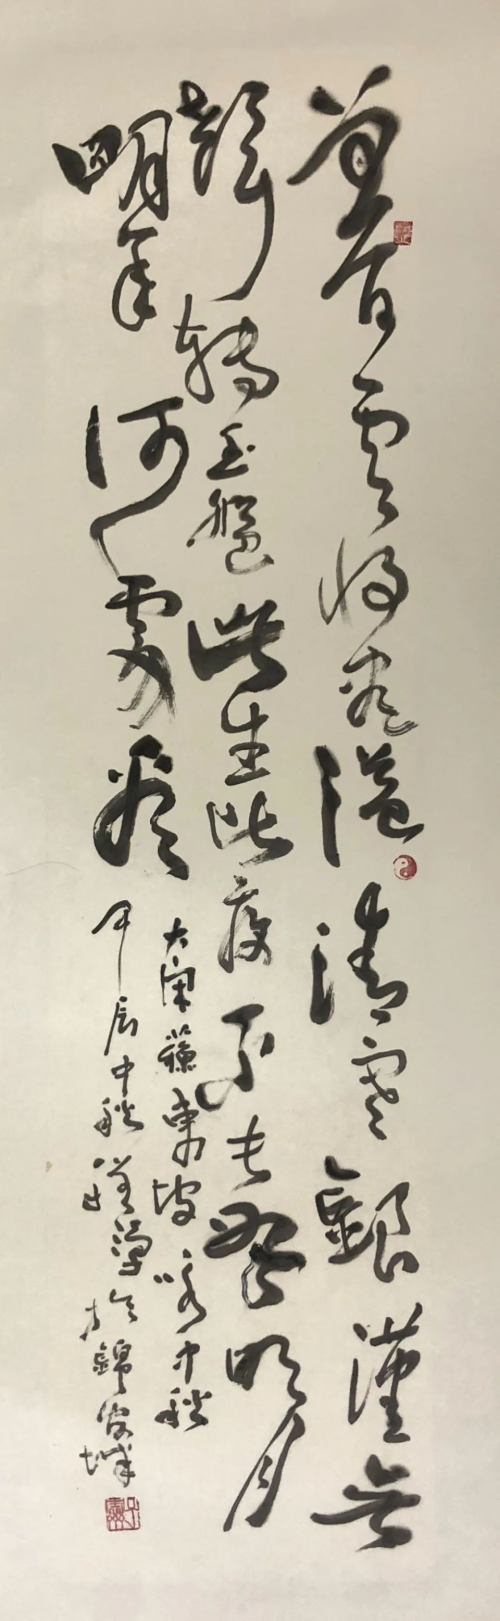 暮云收尽溢清寒銀漢無
聲轉玉盤此生此夜不長好明月
明年何處看
大宋蘇東坡咏中秋
甲辰中秋學於錦官城